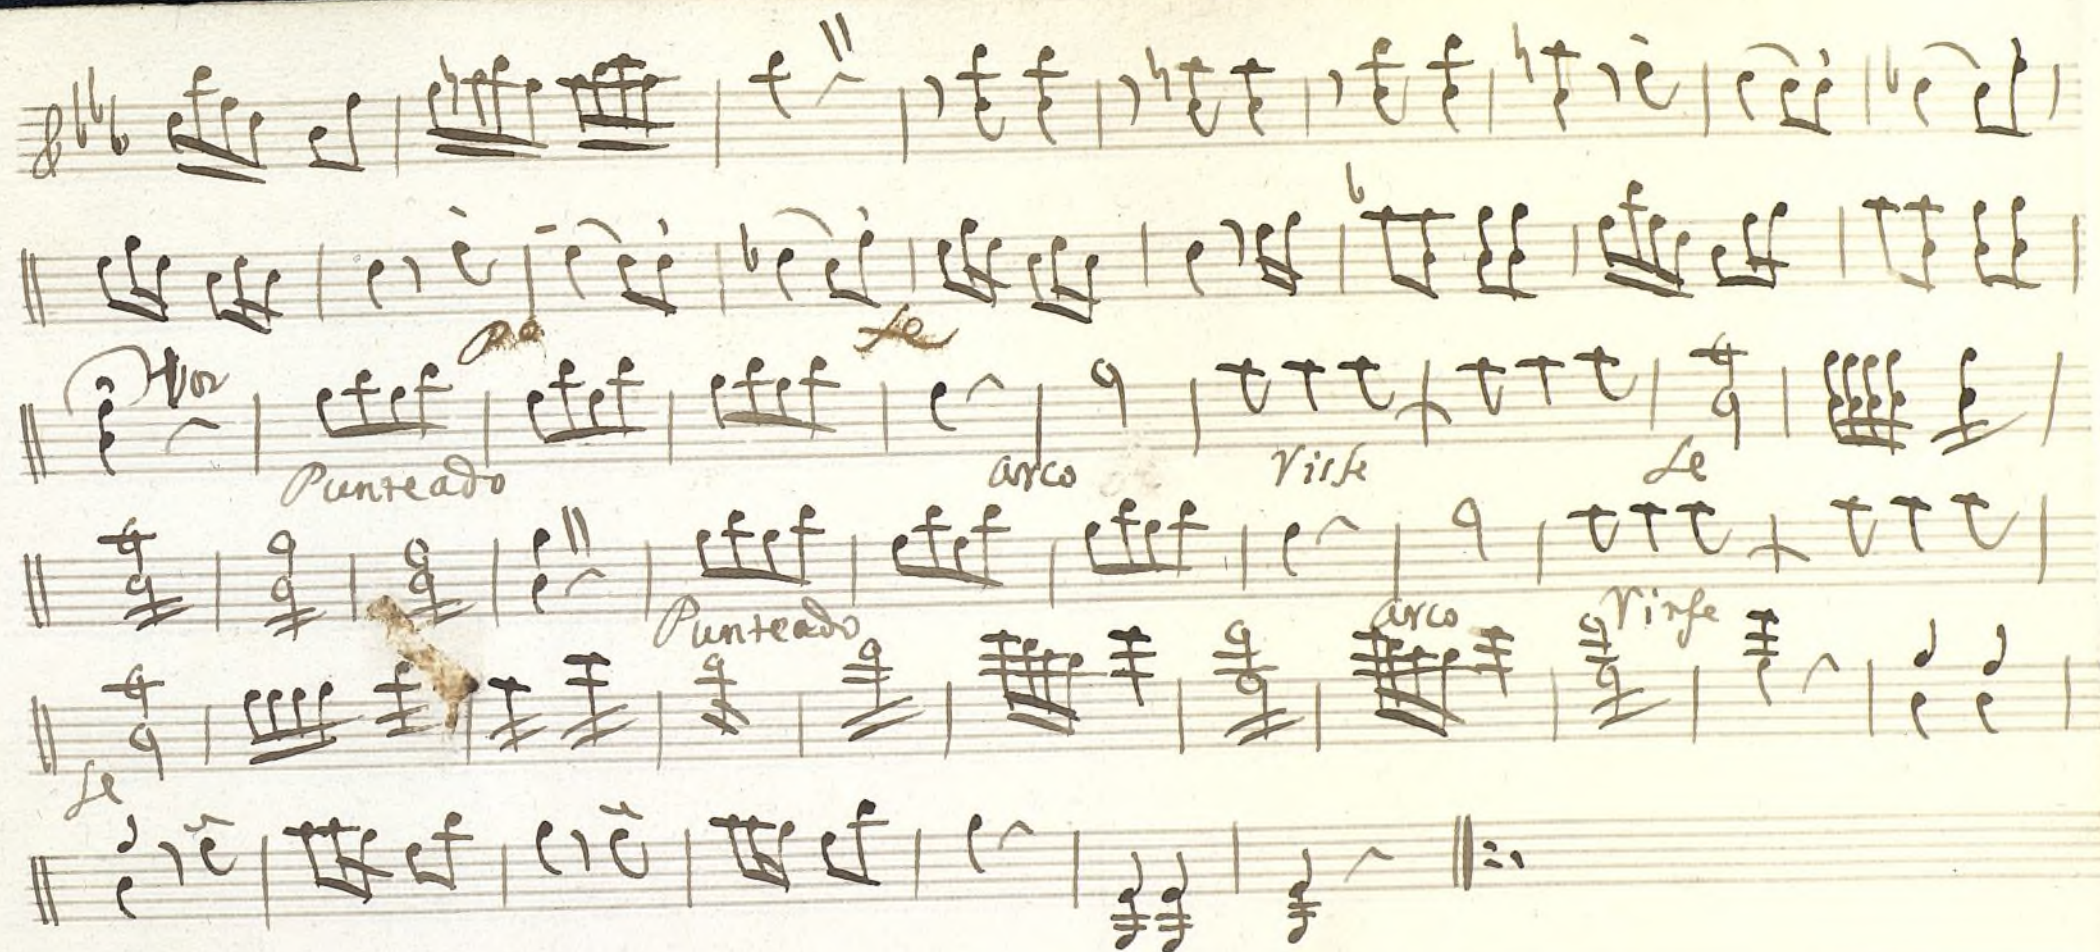 po fe
Voz
Punteado arco Visfe fe
Punteado arco Vinfe
fe